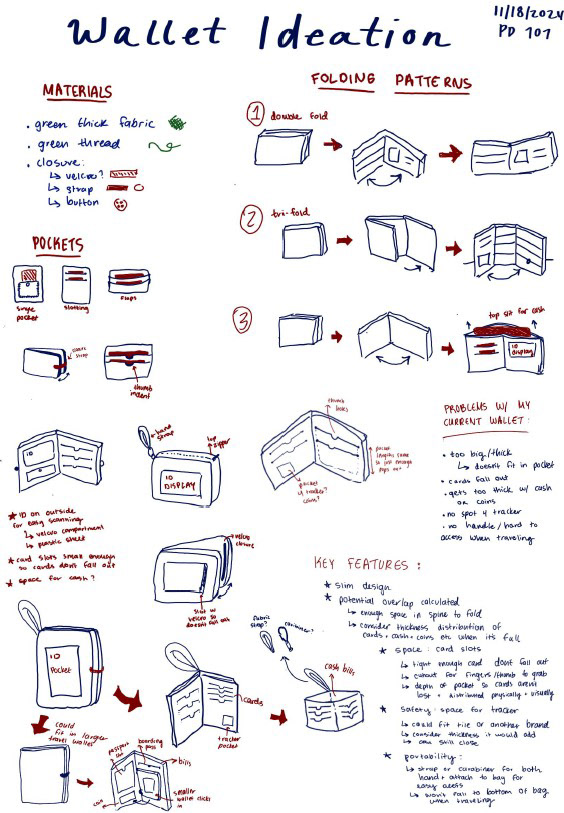 Wallet Ideation
11/18/2024
PD 101
MATERIALS
• green thick fabric
• green thread
• closure:
↳ velcro?
↳ strap
↳ button
FOLDING PATTERNS
1 double fold
2 tri-fold
3
top slit for cash
ID
display
POCKETS
single
pocket
slotting
flaps
strap
thumb
indent
ID
hand
strap
top
zipper
ID
DISPLAY
* ID on outside
for easy scanning
↳ velcro compartment
↳ plastic sheet
* card slots small enough
so cards don't fall out
* space for cash?
velcro
closure
slot w/
velcro so
doesn't fall out
thumb
pocket
4 tracker?
coins?
pocket
PROBLEMS W/ MY
CURRENT WALLET:
• too big/thick
↳ doesn't fit in pocket
• cards fall out
• gets too thick w/ cash
or coins
• no spot 4 tracker
• no handle/hard to
access when traveling
KEY FEATURES:
* slim design
* potential overlap calculated
↳ enough space in spine to fold
↳ consider thickness distribution of
cards + cash + coins etc when it's full
* space: card slots
↳ tight enough card dont fall out
↳ cutout for fingers/thumb to grab
↳ depth of pocket so cards arent
lost + distributed physically + visually
* safety: space for tracker
↳ could fit tile or another brand
↳ consider thickness it would add
↳ can still close
* portability:
↳ strap or carabiner for both
hand + attach to bag for
easy access
↳ won't fall to bottom of bag
when traveling
ID
Pocket
cards
tracker
pocket
fabric
strap?
carabiner?
cash bills
could
fit in larger
travel wallet
passport
slot
boarding
pass
bills
coin
smaller
wallet clicks
in